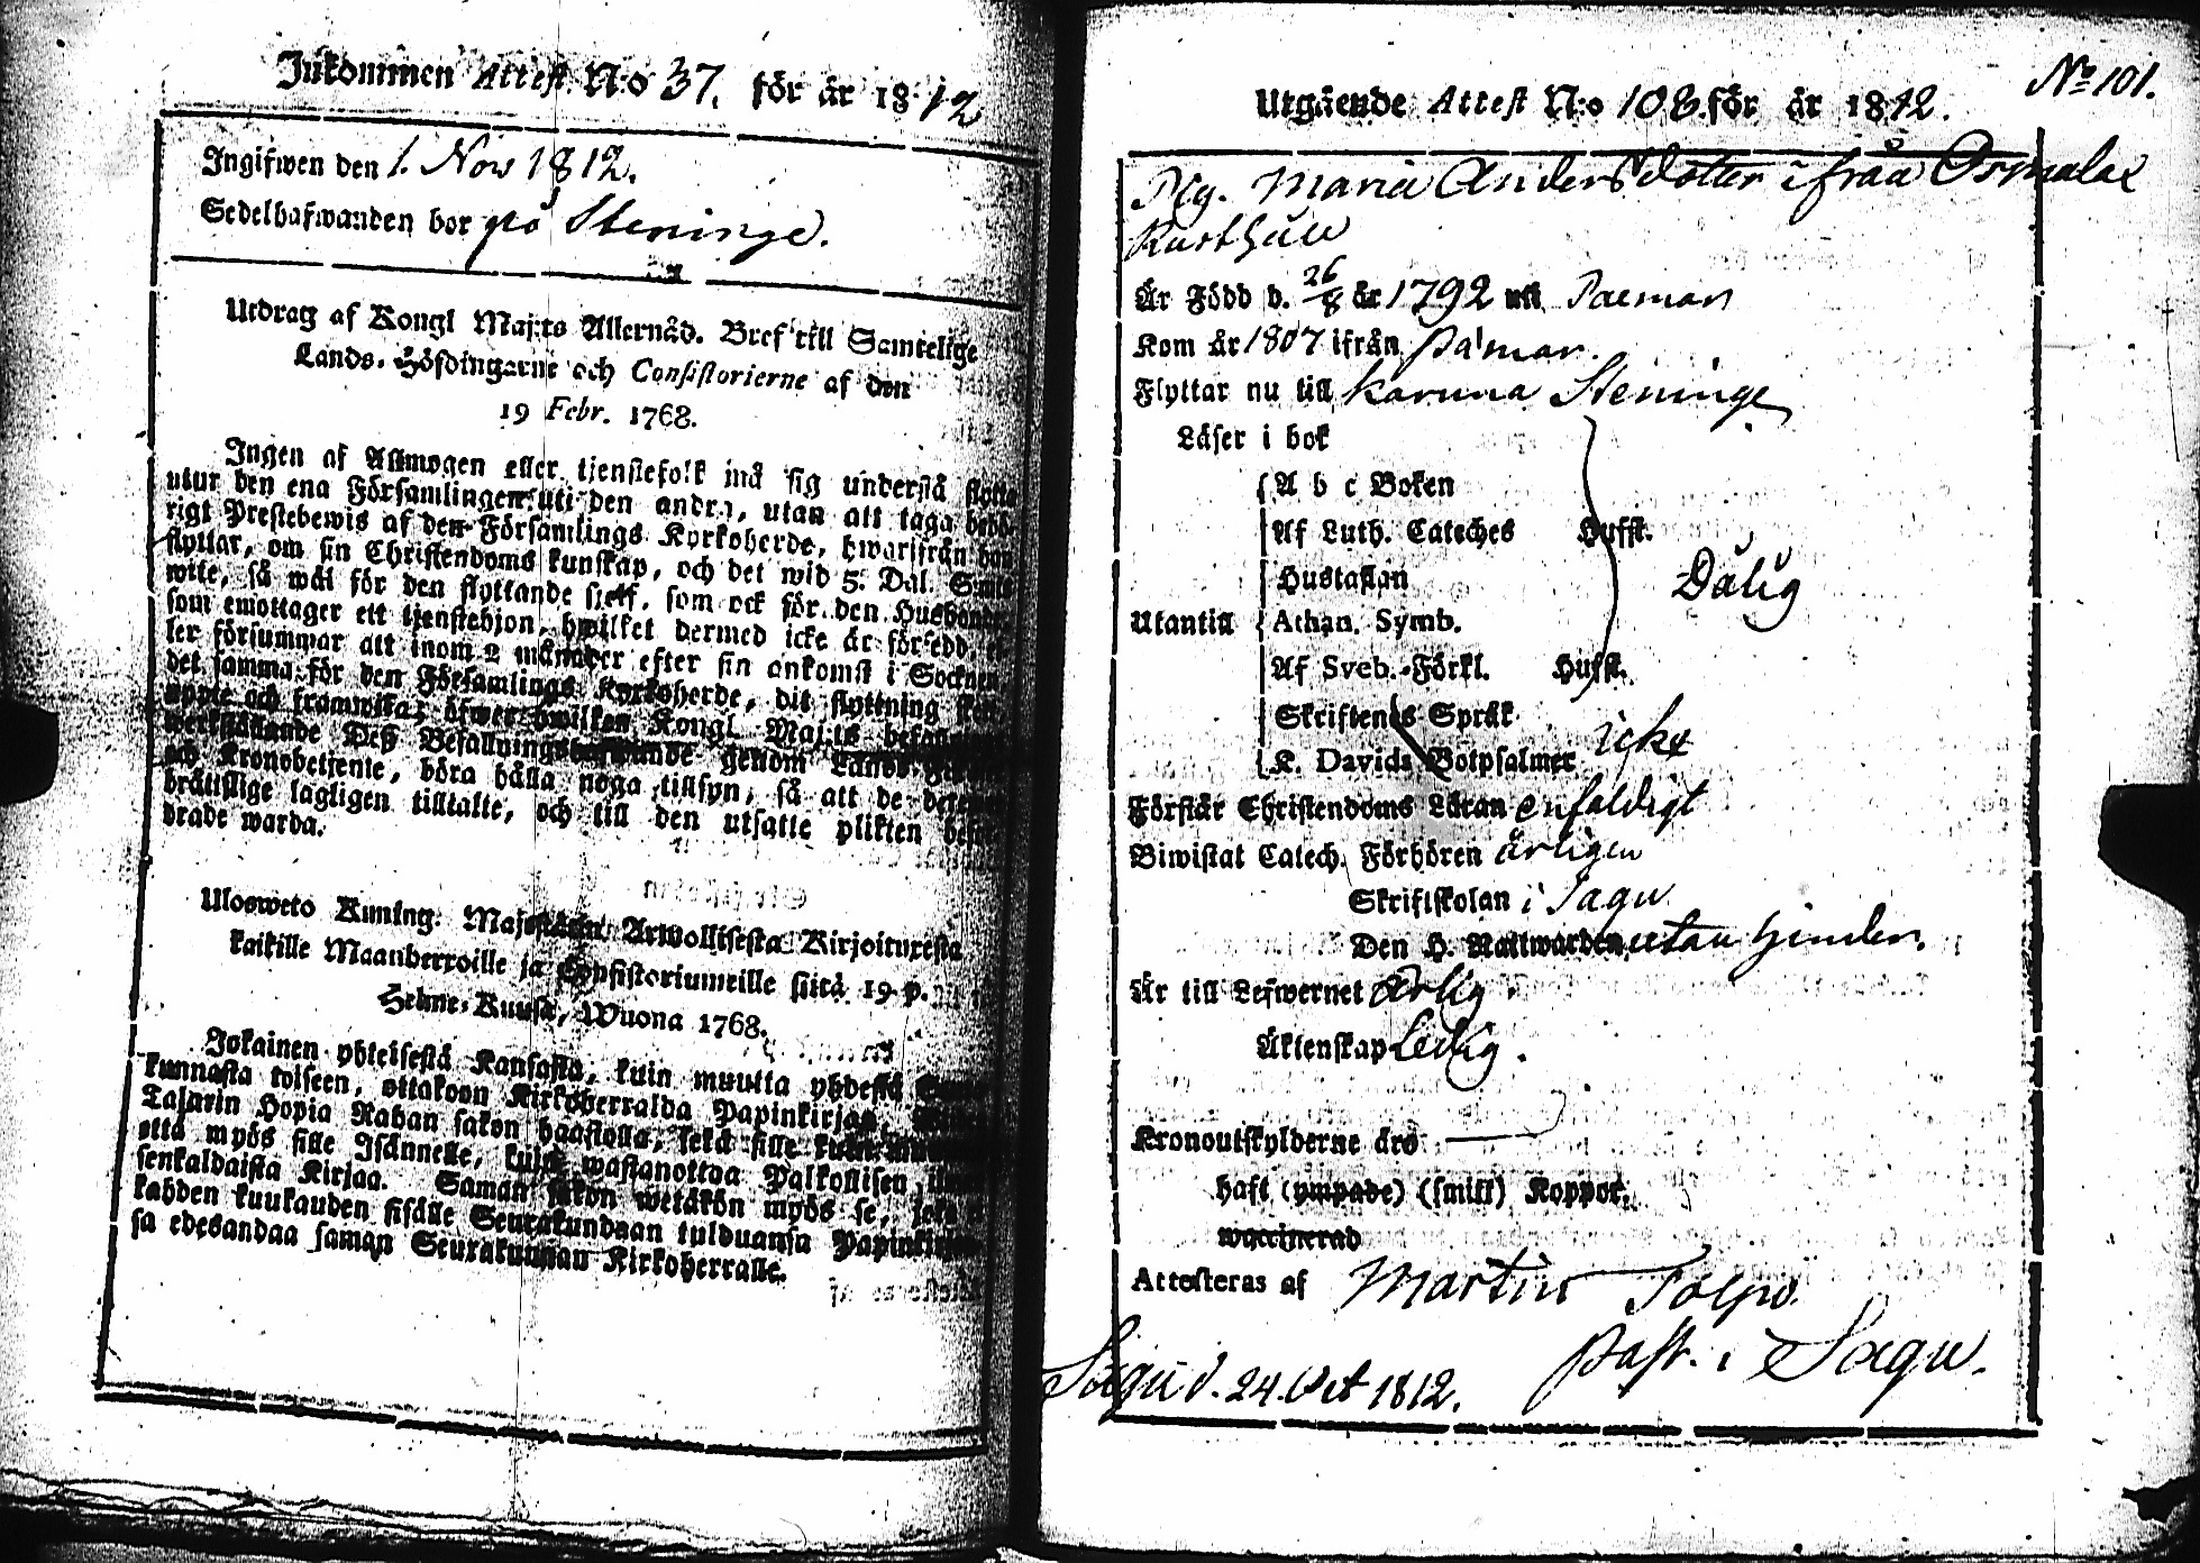 Inkommen Attest N:o 37. för år 1812
Ingifwen den 1. Nov 1812.
Sedelhafwanden bor på Steninge.
Utdrag af Kongl Maj:ts Allernåd. Bref till Samtelige
Lands-Höfdingarne och Consistorierne af den
19 Febr. 1768.
Ingen af Allmogen eller tjenstefolk må sig understå flytta
utur den ena Församlingen uti den andra, utan att taga behö-
rigt Prestebewis af den Församlings Kyrkoherde, hwarifrån han
flyttar, om sin Christendoms kunskap, och det wid 5. Dal. S:mts
wite, så wäl för den flyttande sjelf, som ock för den Husbonde
som emottager ett tjenstehjon, hwilket dermed icke är försedd el-
ler försummar att inom 2 månader efter sin ankomst i Socknen
det samma för den Församlings Kyrkoherde, dit flyttning sker
uppte och framwisa; öfwer hwilken Kongl. Maj:ts befallning
werkställande Deß Befallningshafwande genom Lands-
och Kronobetjente, böra hålla noga tillsyn, så att de
brättslige lagligen tilltalte, och till den utsatte plikten
drade warda.
Ulosweto Kuning. Majestätin Armollisesta Kirjoituxesta
kaikille Maanherroille ja Consistoriumeille siitä 19 p.
Helme-Kuusa, Wuona 1768.
Jokainen yhteisestä Kansasta, kuin muutta yhdestä
kunnasta toiseen, ottakoon Kirkoherralda Papinkirjan,
Talarin Hopia Rahan sakon haastolla, sekä sille kuin
että myös sille Isännelle, kuin wastanottaa Palkollisen
senkaldaista Kirjaa. Saman sakon wetäkön myös se, joka
kahden kuukauden sisälle Seurakundaan tulduansa Papinkirjan
sa edesandaa saman Seurakunnan Kirkoherralle.
No 101.
Utgående Attest N:o 108. för år 1812.
Pig. Maria Andersdotter ifrån Osmalax
Rusthåll
Är Född d. 26/8 år 1792 uti Paemar
Kom år 1807 ifrån Pämar.
Flyttar nu till Karuna Steninge
Läser i bok
A b c Boken
Af Luth. Cateches Hufst.
Hustaflan
Dålig
Utantill Athan. Symb.
Af Sveb. Förkl. Hufst.
Skriftenes Språk
icke
K. Davids Botpsalmer
Förstår Christendoms Läran enfaldigt
Biwistat Catech. Förhören årligen
Skriftskolan i Sagu
Den H. Nattwarden utan hinder.
Är till Lefwernet Ärlig.
Äktenskap Ledig.
Kronoutskylderne äro
haft (ympade) (smitt) Koppor.
waccinerad
Attesteras af Martin Tolpo.
Past. i Sagu.
Sagu d. 24. Oct 1812.